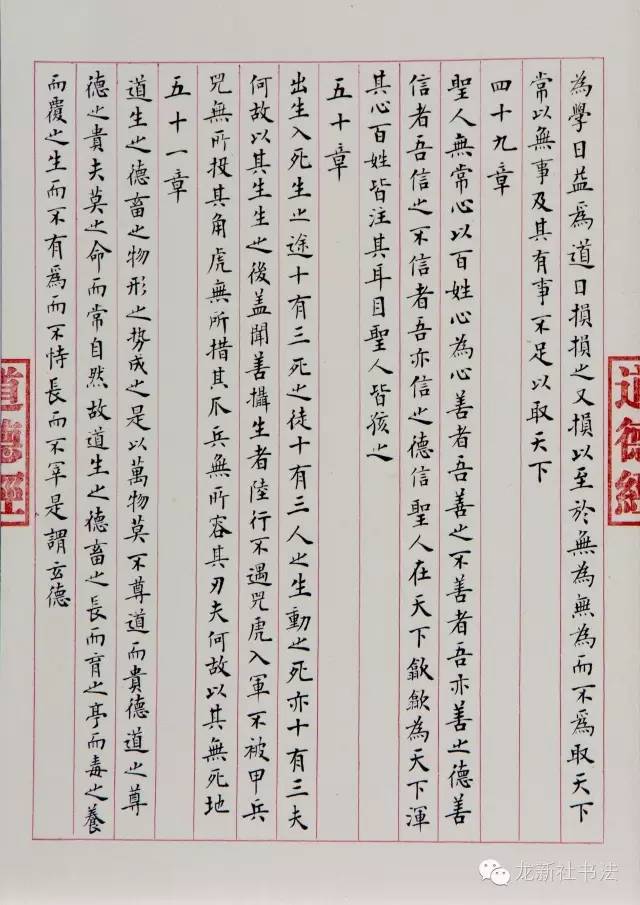 為學日益為道日損損之又損以至於無為無為而不為取天下
常以無事及其有事不足以取天下
四十九章
聖人無常心以百姓心為心善者吾善之不善者吾亦善之德善
信者吾信之不信者吾亦信之德信聖人在天下歙歙為天下渾
其心百姓皆注其耳目聖人皆孩之
五十章
出生入死生之途十有三死之徒十有三人之生動之死亦十有三夫
何故以其生生之後盖聞善攝生者陸行不遇兕虎入軍不被甲兵
兕無所投其角虎無所措其爪兵無所容其刃夫何故以其無死地
五十一章
道生之德畜之物形之势成之是以萬物莫不尊道而貴德道之尊
德之貴夫莫之命而常自然故道生之德畜之長而育之亭而毒之養
而覆之生而不有為而不恃長而不宰是謂玄德
道德經
道德經
龙新社书法